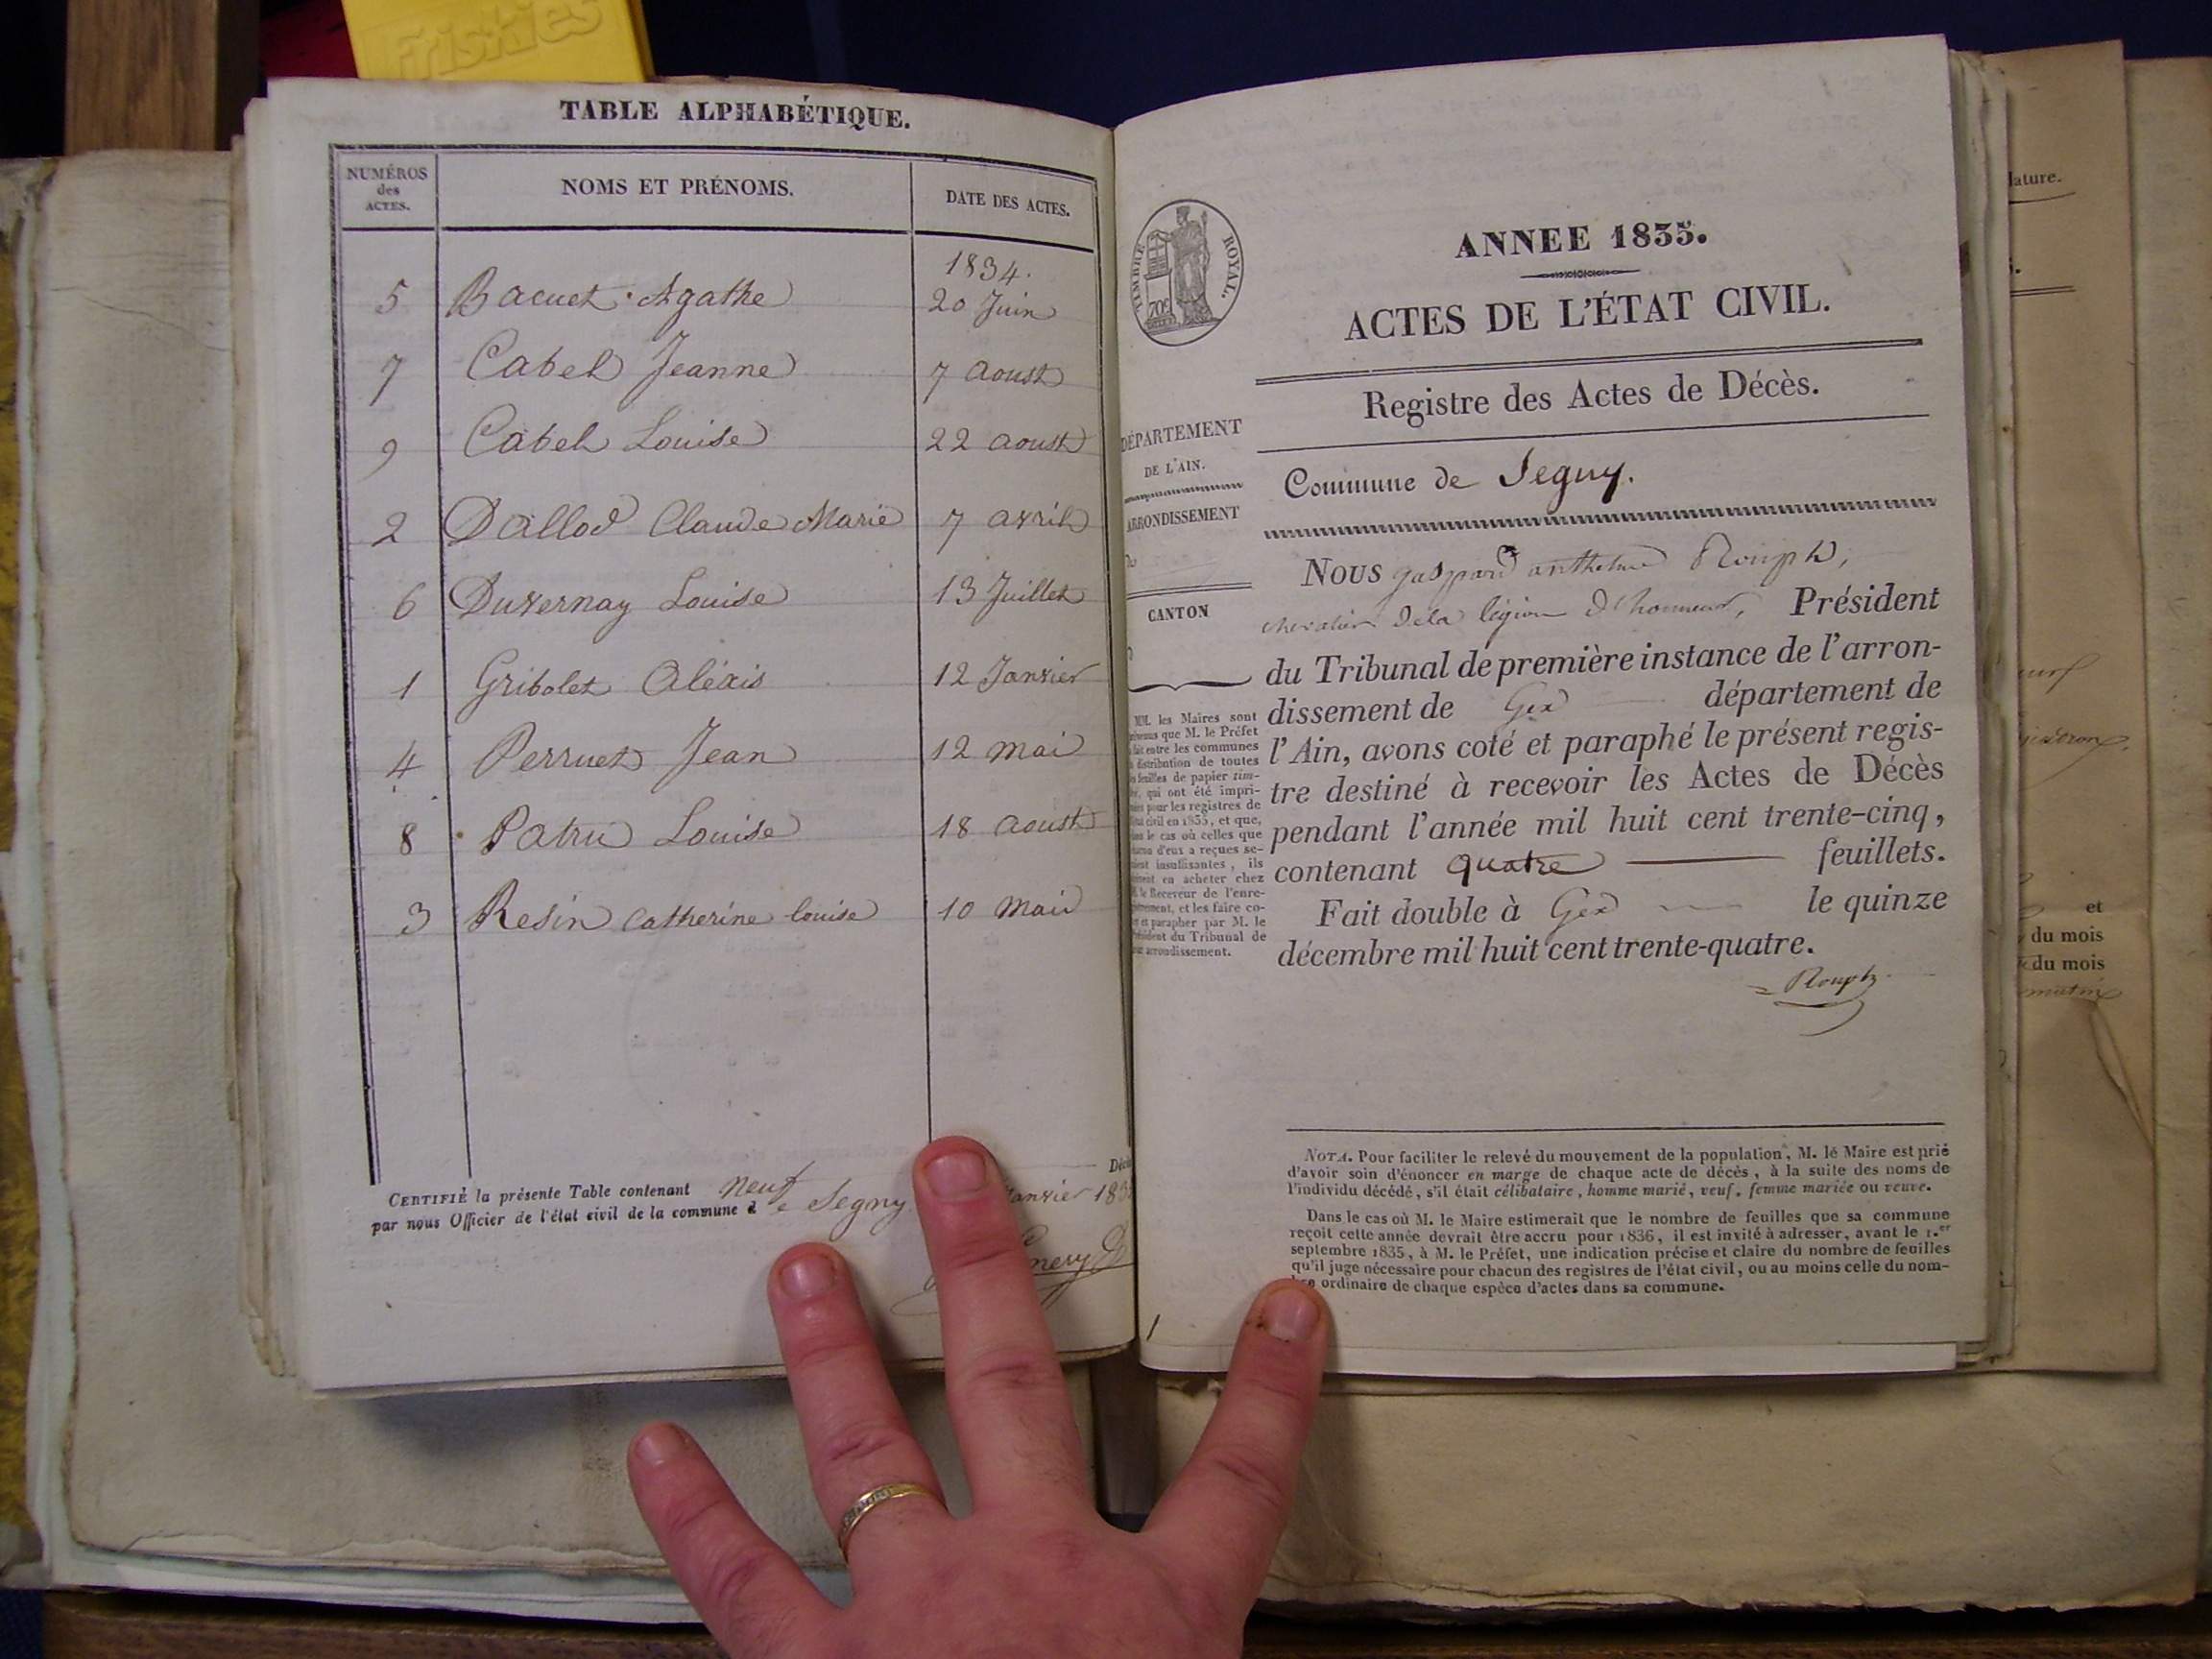 Friskies
TABLE ALPHABÉTIQUE.
NUMÉROS
des
ACTES.
NOMS ET PRÉNOMS.
DATE DES ACTES.
1834.
5 Bacuet Agathe 20 Juin
7 Cabel Jeanne 7 aoust
9 Cabel Louise 22 aoust
2 Dallod Claude Marie 7 avril
6 Duvernay Louise 13 Juillet
1 Gribolet Aléxis 12 Janvier
4 Perruet Jean 12 mai
8 Patru Louise 18 aoust
3 Resin Catherine louise 10 mai
CERTIFIÉ la présente Table contenant neuf Déc
par nous Officier de l'état civil de la commune de Segny Janvier 183
TIMBRE ROYAL.
70c
ANNEE 1835.
ACTES DE L'ÉTAT CIVIL.
Registre des Actes de Décès.
DÉPARTEMENT
DE L'AIN.
ARRONDISSEMENT
CANTON
MM. les Maires sont
prévenus que M. le Préfet
a fait entre les communes
la distribution de toutes
les feuilles de papier tim-
bré, qui ont été impri-
mées pour les registres de
l'état civil en 1835, et que,
dans le cas où celles que
chacun d'eux a reçues se-
raient insuffisantes, ils
devront en acheter chez
M. le Receveur de l'enre-
gistrement, et les faire co-
ter et parapher par M. le
Président du Tribunal de
leur arrondissement.
Commune de Segny.
Nous gaspard anthelme Rouph,
chevalier de la légion d'honneur, Président
du Tribunal de première instance de l'arron-
dissement de Gex département de
l'Ain, avons coté et paraphé le présent regis-
tre destiné à recevoir les Actes de Décès
pendant l'année mil huit cent trente-cinq,
contenant quatre feuillets.
Fait double à Gex le quinze
décembre mil huit cent trente-quatre.
Rouph
NOTA. Pour faciliter le relevé du mouvement de la population, M. le Maire est prié
d'avoir soin d'énoncer en marge de chaque acte de décès, à la suite des noms de
l'individu décédé, s'il était célibataire, homme marié, veuf, femme mariée ou veuve.
Dans le cas où M. le Maire estimerait que le nombre de feuilles que sa commune
reçoit cette année devrait être accru pour 1836, il est invité à adresser, avant le 1.er
septembre 1835, à M. le Préfet, une indication précise et claire du nombre de feuilles
qu'il juge nécessaire pour chacun des registres de l'état civil, ou au moins celle du nom-
bre ordinaire de chaque espèce d'actes dans sa commune.
1
lature.
et
du mois
du mois